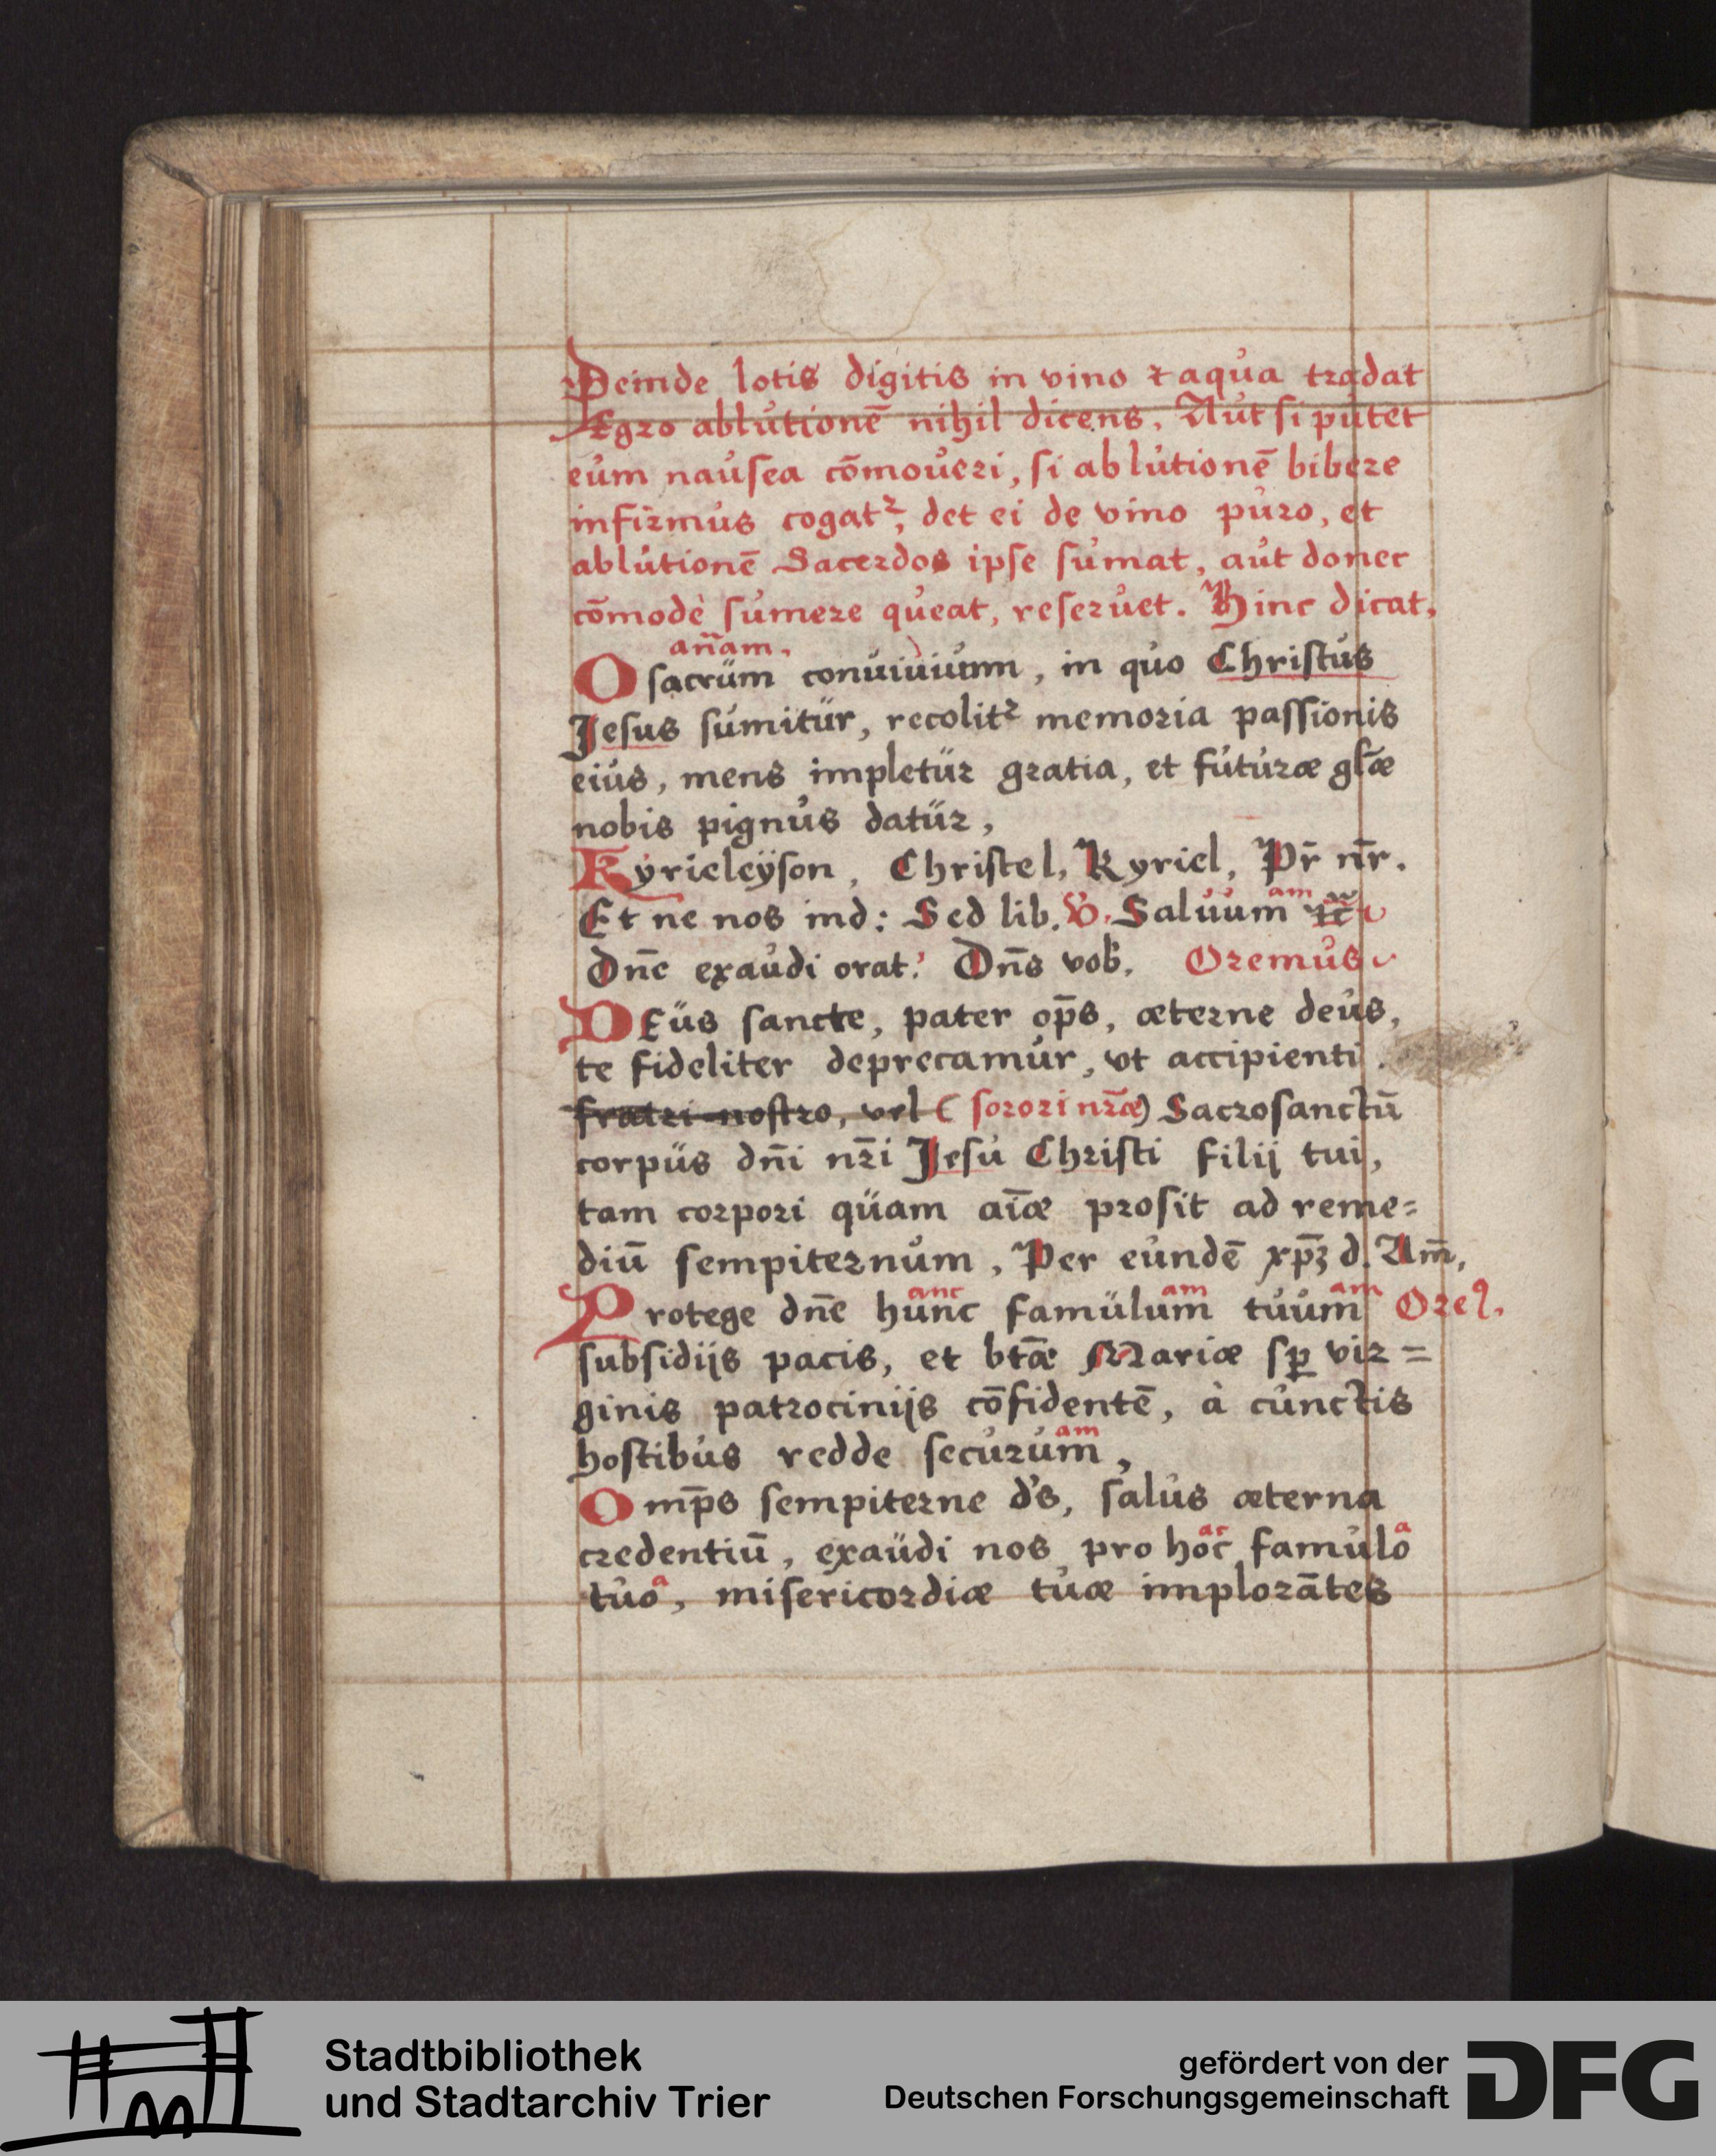 Deinde lotis digitis in vino & aqua tradat
Ægro ablutionē nihil dicens. Aut si putet
eum nausea cōmoveri, si ablutionē bibere
infirmus cogatr, det ei de vino puro, et
ablutionē Sacerdos ipse sumat, aut donec
cōmodè sumere queat, reservet. Hinc dicat,
añam,
O sacrum conuiuium, in quo Christus
Jesus sumitur, recolitr memoria passionis
eius, mens impletur gratia, et futuræ gl̃æ
nobis pignus datur,
Kyrieleyson, Christel, Kyriel, Pr̄ nr̄.
Et ne nos ind: Sed lib. V. Saluum am ⁊c̄
Dn̄e exaudi orat: Dn̄s vob. Oremus
DEus sancte, pater op̄s, æterne deus,
te fideliter deprecamur, vt accipienti
fratri nostro, vel (sorori nr̄æ) Sacrosanctū
corpus dn̄i nr̄i Jesu Christi filij tui,
tam corpori quam aīæ prosit ad reme=
diū sempiternum, Per eundē xp̄ꝫ d. Am̄,
anc am am
Protege dn̄e hunc famulum tuum Orel.
subsidijs pacis, et btǣ Mariæ sp̱ vir=
ginis patrocinijs cōfidentē, à cunctis
am
hostibus redde securum,
Omp̄s sempiterne d's, salus æterna
ac a
credentiū, exaudi nos pro hoc famulo
a
tuo, misericordiæ tuæ implorātes
Stadtbibliothek
und Stadtarchiv Trier
gefördert von der
Deutschen Forschungsgemeinschaft
DFG